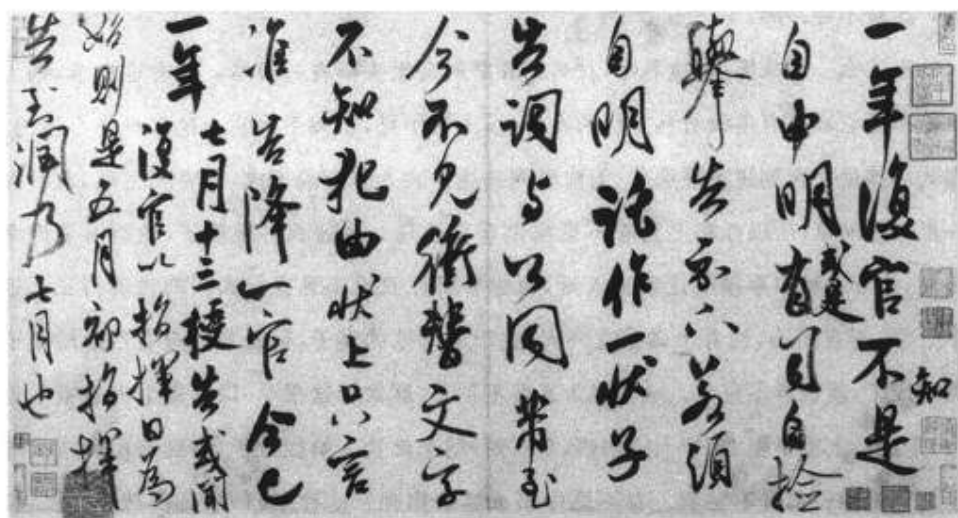 一年復官不知是
自申明或是有司自撿
舉告示下若須
自明託作一狀子
告詞与公同幣至
今不見衝替文字
不知犯由狀上只言
准告降一官今已
一年七月十三授告或聞
復官以指揮日為
始則是五月初指揮
告到潤乃七月也